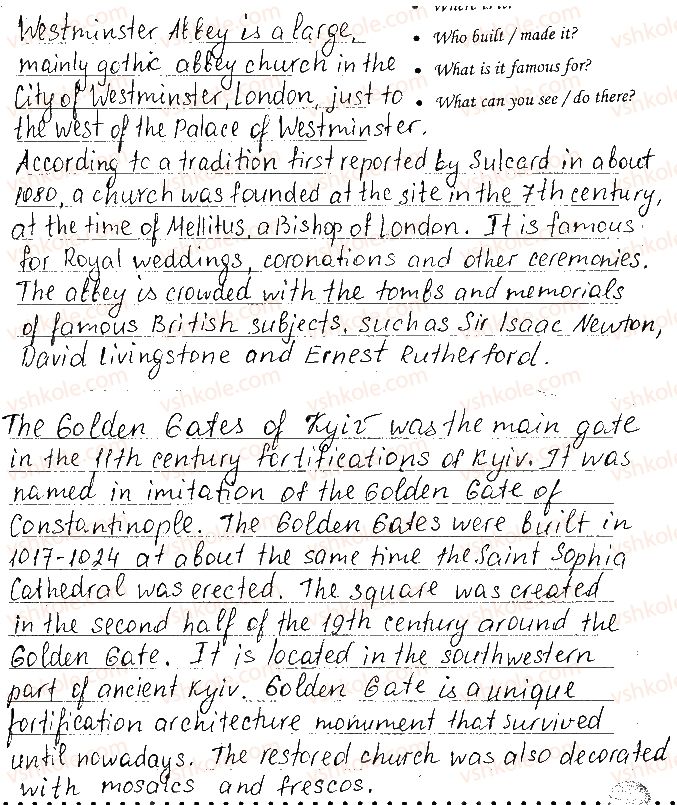 Westminster Abbey is a large,
mainly gothic abbey church in the
City of Westminster, London, just to
the west of the Palace of Westminster.
• Who built / made it?
• What is it famous for?
• What can you see / do there?
According to a tradition first reported by Sulcard in about
1080, a church was founded at the site in the 7th century,
at the time of Mellitus, a Bishop of London. It is famous
for Royal weddings, coronations and other ceremonies.
The abbey is crowded with the tombs and memorials
of famous British subjects, such as Sir Isaac Newton,
David Livingstone and Ernest Rutherford.
The Golden Gates of Kyiv was the main gate
in the 11th century fortifications of Kyiv. It was
named in imitation of the Golden Gate of
Constantinople. The Golden Gates were built in
1017-1024 at about the same time the Saint Sophia
Cathedral was erected. The square was created
in the second half of the 19th century around the
Golden Gate. It is located in the southwestern
part of ancient Kyiv. Golden Gate is a unique
fortification architecture monument that survived
until nowadays. The restored church was also decorated
with mosaics and frescos.
vshkole.com